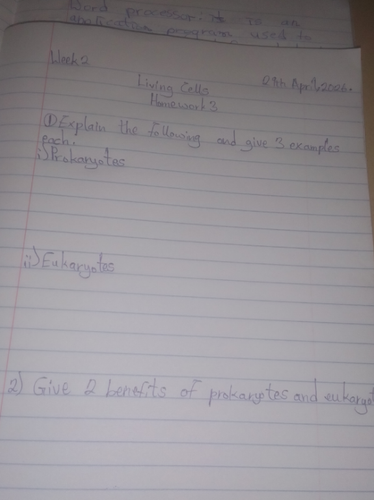 Word processor: it is an
application program used to
Week 2
Living Cells
Homework 3
① Explain the following and give 3 examples
each.
i) Prokaryotes
ii) Eukaryotes
2) Give 2 benefits of prokaryotes and eukaryot